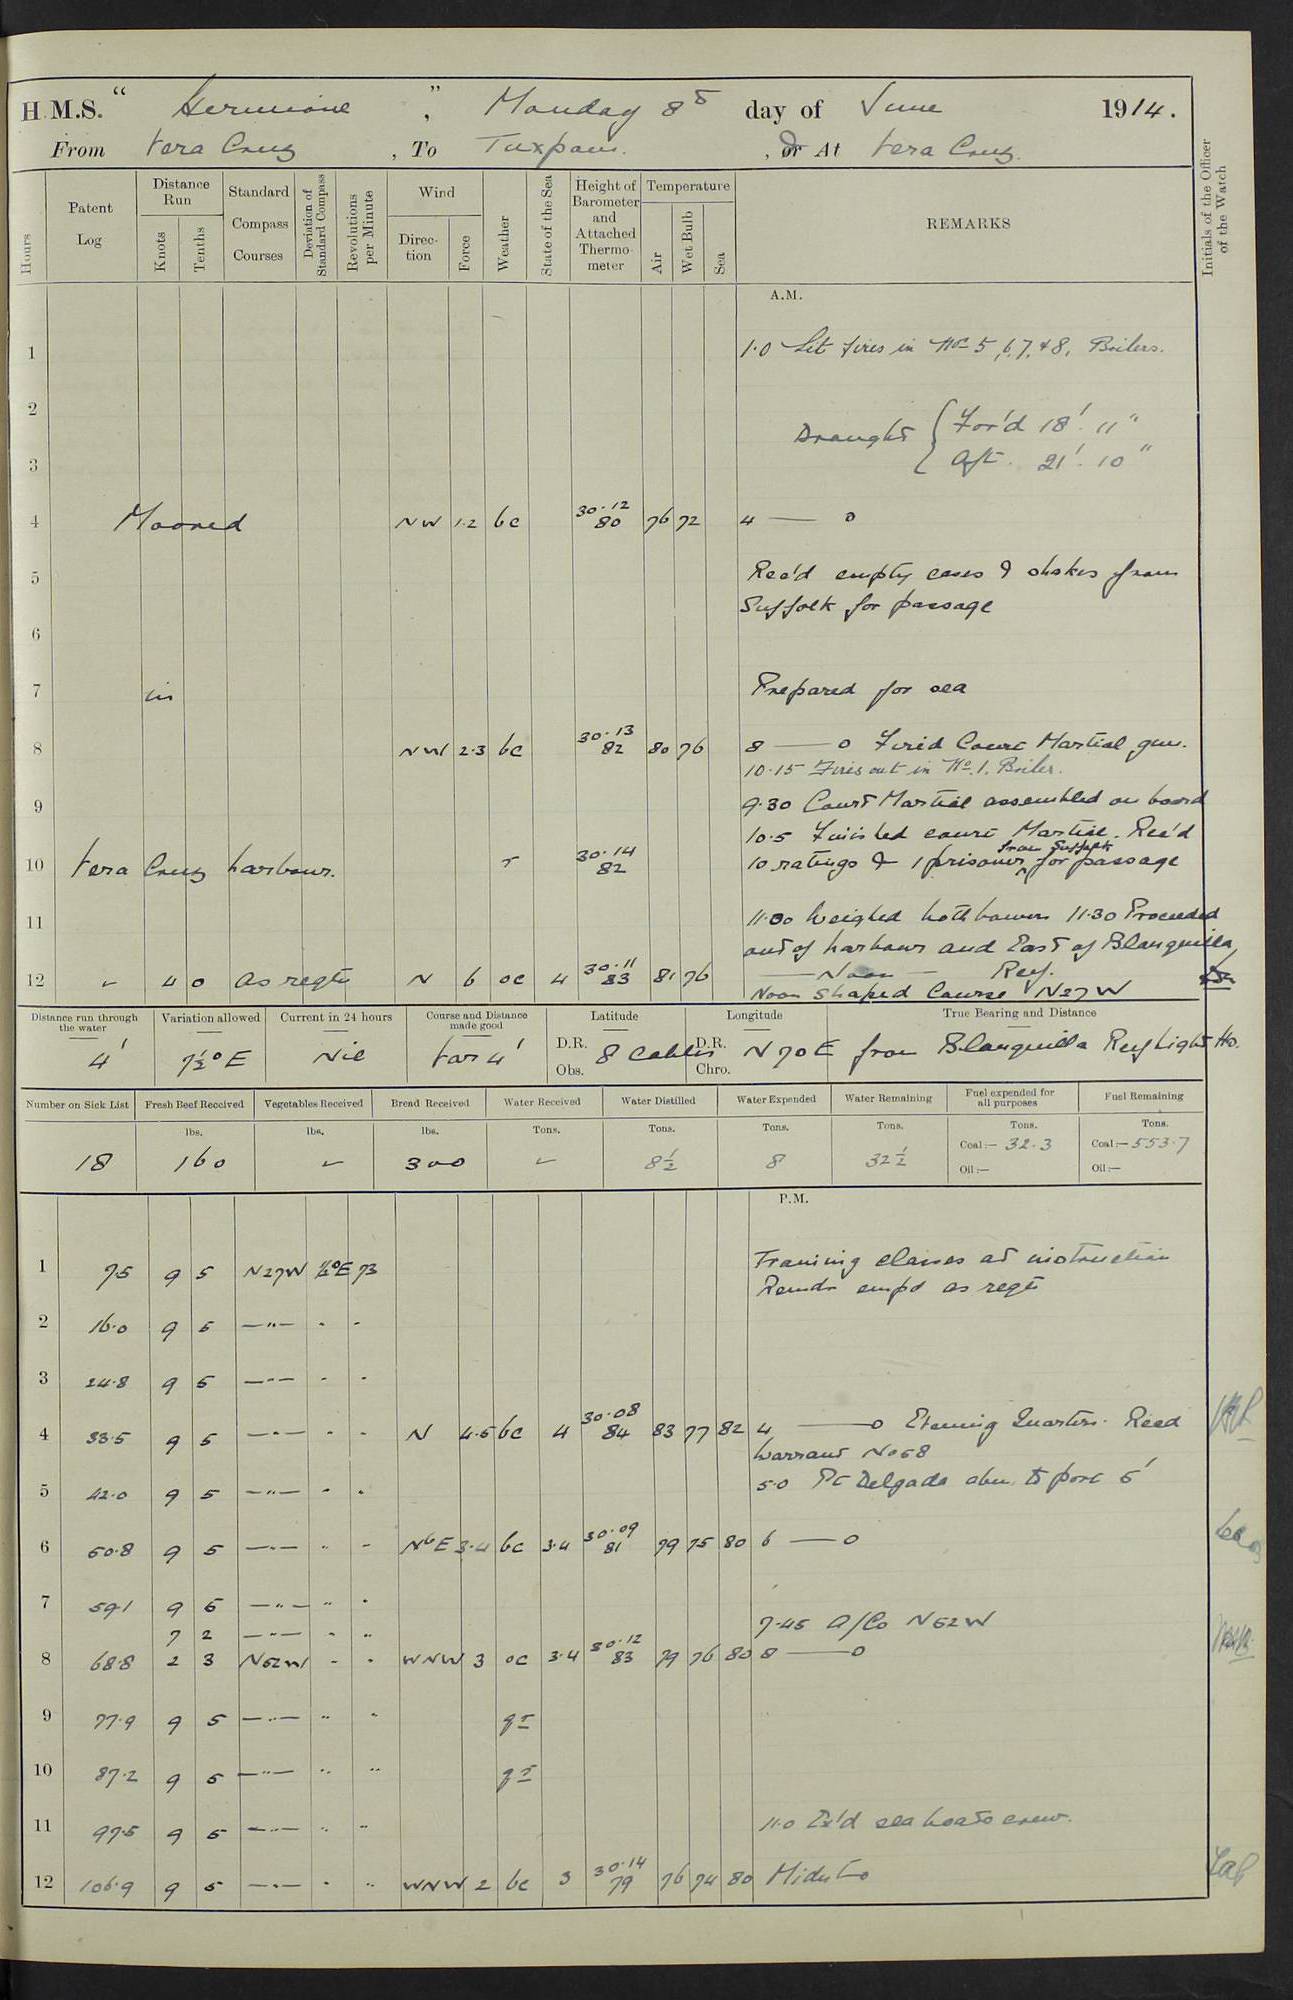 H.M.S. "Hermione", Monday 8th day of June 1914.
From Vera Cruz, To Tuxpam., or At Vera Cruz.
Hours
Patent Log
Distance Run
Knots
Tenths
Standard Compass Courses
Deviation of Standard Compass
Revolutions per Minute
Wind
Direction
Force
Weather
State of the Sea
Height of Barometer and Attached Thermometer
Temperature
Air
Wet Bulb
Sea
REMARKS
Initials of the Officer of the Watch
A.M.
1 1.0 Lit fires in Nos 5, 6, 7, & 8, Boilers.
2 Draught { For'd 18' 11"
3 Aft. 21' 10"
4 Moored NW 1.2 bc 30.12 80 76 72 4 — o
5 Rec'd empty cases & shakes from
Suffolk for passage
6
7 in Prepared for sea
8 NW 2.3 bc 30.13 82 80 76 8 — o Fired Court Martial gun.
10.15 Fires out in No. 1. Boiler.
9 9.30 Court Martial assembled on board
10.5 Finished court Martial. Rec'd
10 Vera Cruz harbour. r 30.14 82 10 ratings & 1 prisoner from Suffolk for passage
11 11.00 Weighed both bowers 11.30 Proceeded
out of harbour and East of Blanquilla
12 ✓ 4 0 As reqte N 6 oc 4 30.11 83 81 76 — Noon — Reef.
Noon Shaped Course N27W
Distance run through the water
Variation allowed
Current in 24 hours
Course and Distance made good
Latitude
Longitude
True Bearing and Distance
4' 7½° E Nil Var 4' D.R. Obs. 8 Cables D.R. Chro. N70E from Blanquilla Reef Light Ho.
Number on Sick List
Fresh Beef Received
Vegetables Received
Bread Received
Water Received
Water Distilled
Water Expended
Water Remaining
Fuel expended for all purposes
Fuel Remaining
lbs. lbs. lbs. Tons. Tons. Tons. Tons. Tons. Tons.
18 160 ✓ 300 ✓ 8½ 8 32½ Coal:— 32.3 Coal:— 553.7
Oil:— Oil:—
P.M.
1 7.5 9 5 N27W ½°E 73 Training classes at instruction
Remdr empd as reqte
2 16.0 9 5 —"— " "
3 24.8 9 5 —"— " "
4 33.5 9 5 —"— " " N 4.5 bc 4 30.08 84 83 77 82 4 — o Evening Quarters. Read
Warrant No 58
5 42.0 9 5 —"— " " 5.0 Pt Delgada abm. to port 6'
6 50.8 9 5 —"— " " NbE 3.4 bc 3.4 30.09 81 79 75 80 6 — o
7 59.1 9 5 —"— " "
7 2 —"— " " 7.45 A/Co N52W
8 68.8 2 3 N52W " " WNW 3 oc 3.4 30.12 83 79 76 80 8 — o
9 77.9 9 5 —"— " " qr
10 87.2 9 5 —"— " " qr
11 97.5 9 5 —"— " " 11.0 Ex'd sea boats crew.
12 106.9 9 5 —"— " " WNW 2 bc 3 30.14 79 76 74 80 Midnt o